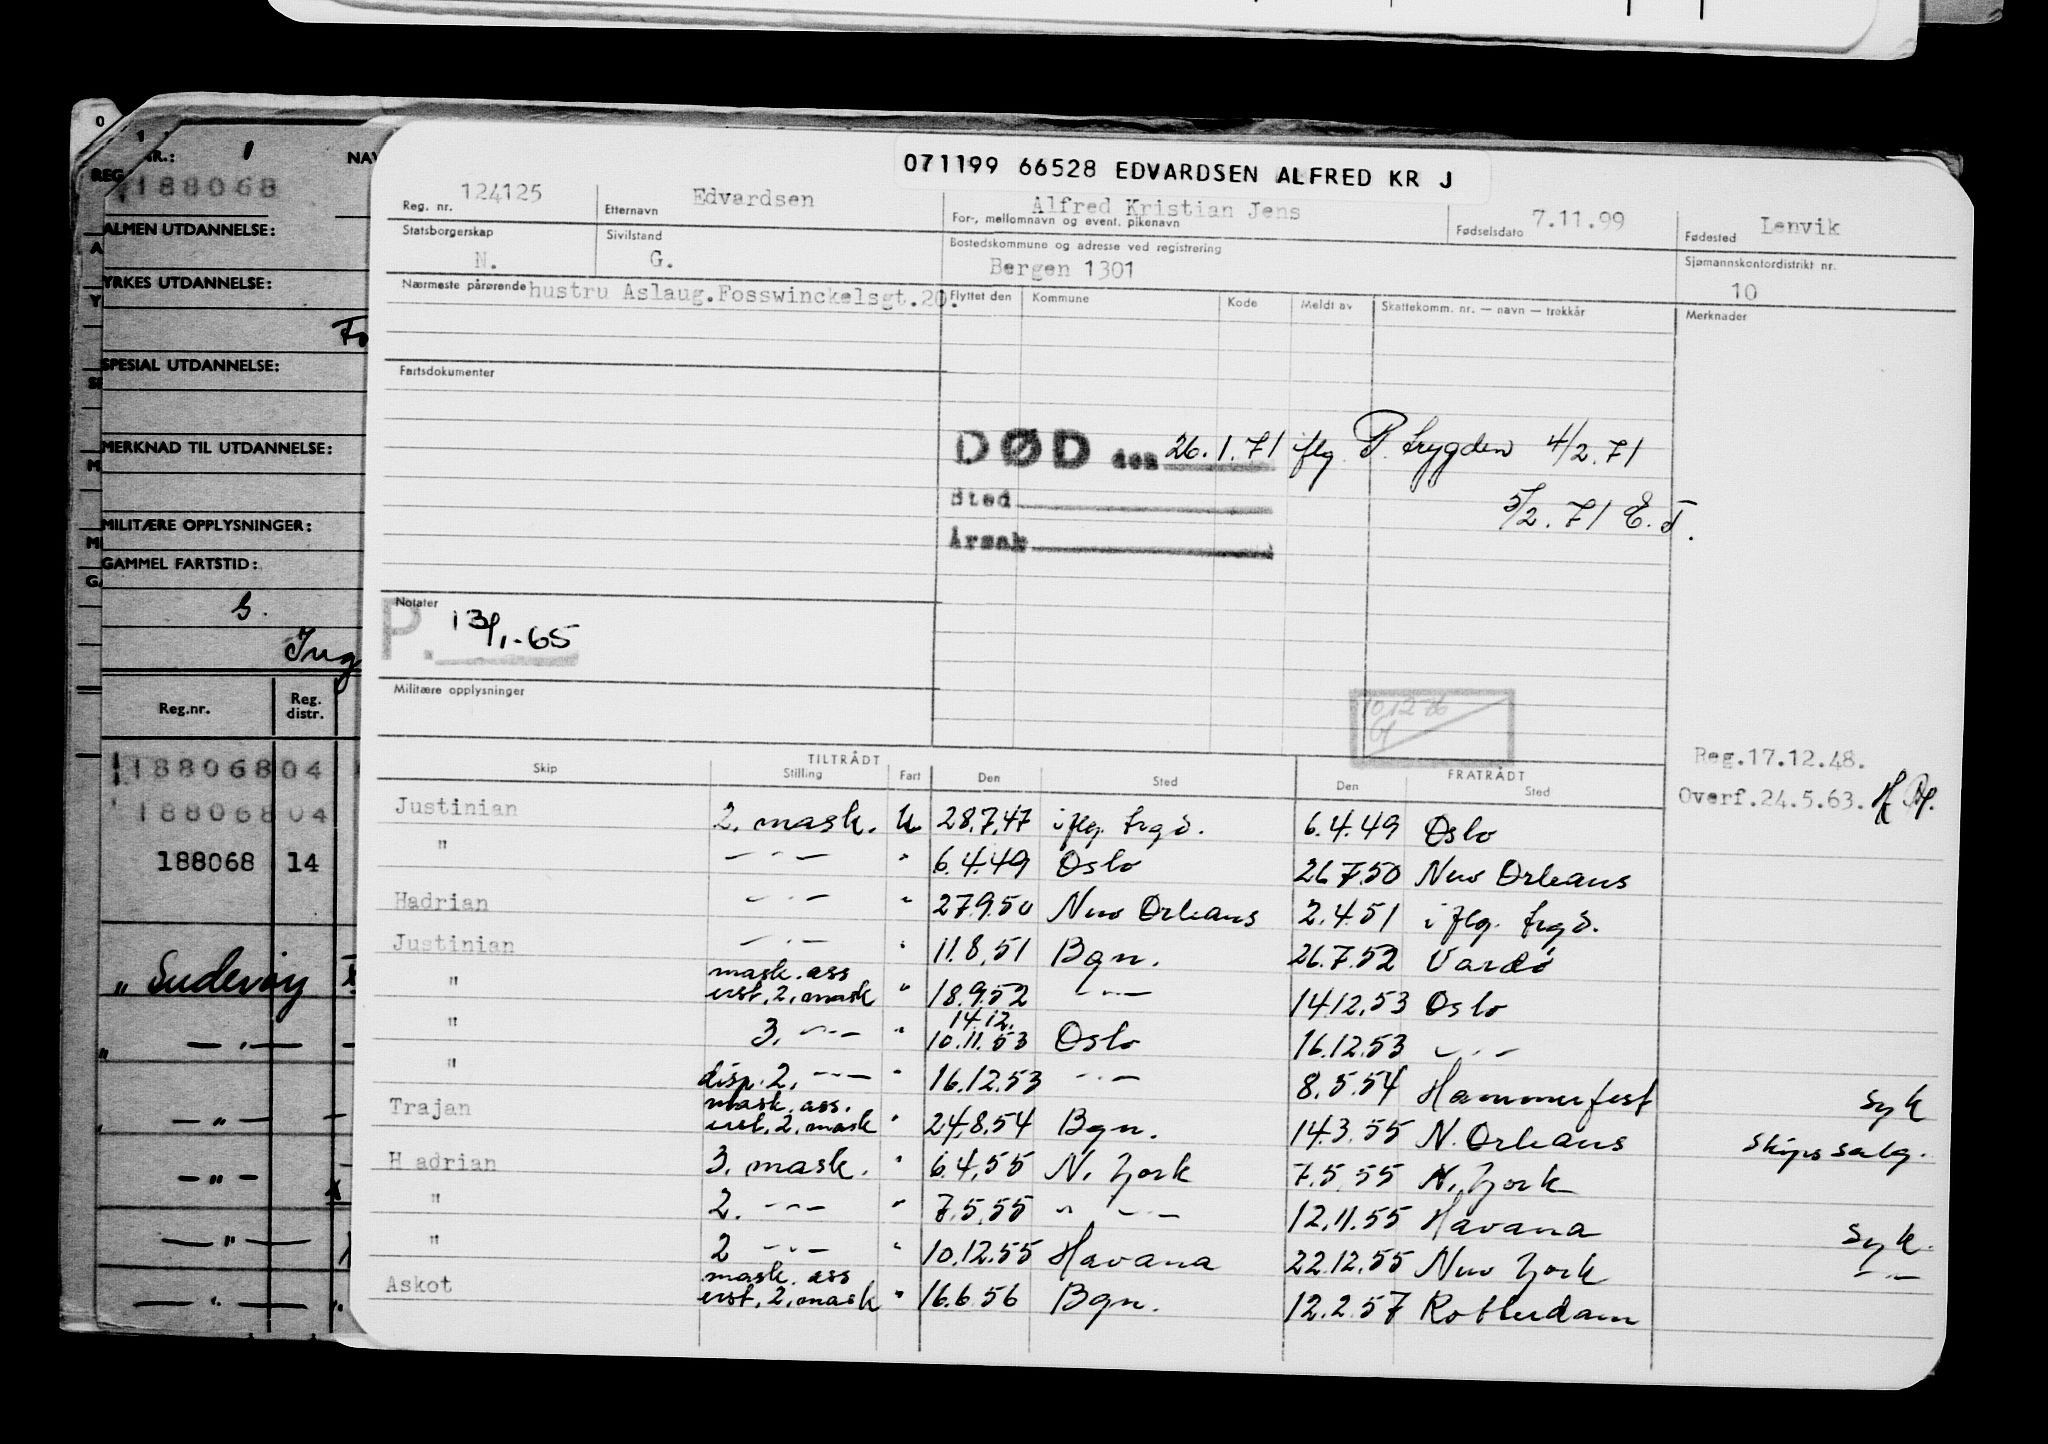 071199 66528 EDVARDSEN ALFRED KR J
Reg. nr. 124125 Etternavn Edvardsen For-, mellomnavn og event. pikenavn Alfred Kristian Jens Fødselsdato 7.11.99 Fødested Lenvik
Statsborgerskap N. Sivilstand G. Bostedskommune og adresse ved registrering Bergen 1301 Sjømannskontordistrikt nr. 10
Nærmeste pårørende hustru Aslaug.Fosswinckelsgt.20. Flyttet den Kommune Kode Meldt av Skattekomm. nr. — navn — trekkår Merknader
Fartsdokumenter
DØD den 26.1.71 iflg P. trygden 4/2.71
Sted 5/2.71 E.T.
Årsak
Notater
P. 13/1.-65
Militære opplysninger
Reg.17.12.48.
Overf.24.5.63.
TILTRÅDT FRATRÅDT
Skip Stilling Fart Den Sted Den Sted
Justinian 2. mask. U 28.7.47 iflg. frgd. 6.4.49 Oslo
" — " — " 6.4.49 Oslo 26.7.50 New Orleans
Hadrian — " — " 27.9.50 New Orleans 2.4.51 iflg. frgd.
Justinian — " — " 11.8.51 Bgn. 26.7.52 Vardø
" mask. ass
erst. 2. mask " 18.9.52 — " — 14.12.53 Oslo
14.12.
" 3. — " — " 10.11.53 Oslo 16.12.53 — " —
" disp. 2. — " — " 16.12.53 — " — 8.5.54 Hammerfest syk
Trajan mask. ass.
erst. 2. mask " 24.8.54 Bgn. 14.3.55 N. Orleans skipssalg.
Hadrian 3. mask. " 6.4.55 N. York 7.5.55 N. York
" 2. — " — " 7.5.55 " — " — 12.11.55 Havana syk.
" 2 — " — " 10.12.55 Havana 22.12.55 New York — " —
Askot mask. ass
erst. 2. mask " 16.6.56 Bgn. 12.2.57 Rotterdam
REG. NR.: 188068
NAV
ALMEN UTDANNELSE:
YRKES UTDANNELSE:
SPESIAL UTDANNELSE:
MERKNAD TIL UTDANNELSE:
MILITÆRE OPPLYSNINGER:
GAMMEL FARTSTID:
Reg.nr. Reg. distr.
188068 04
188068 04
188068 14
" Suderøy
— " —
— " —
— " —
— " —
— " —